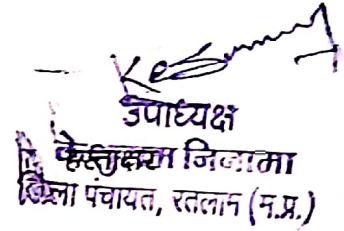 उपाध्यक्ष
निनामा
जिला पंचायत, रतलाम (म.प्र.)